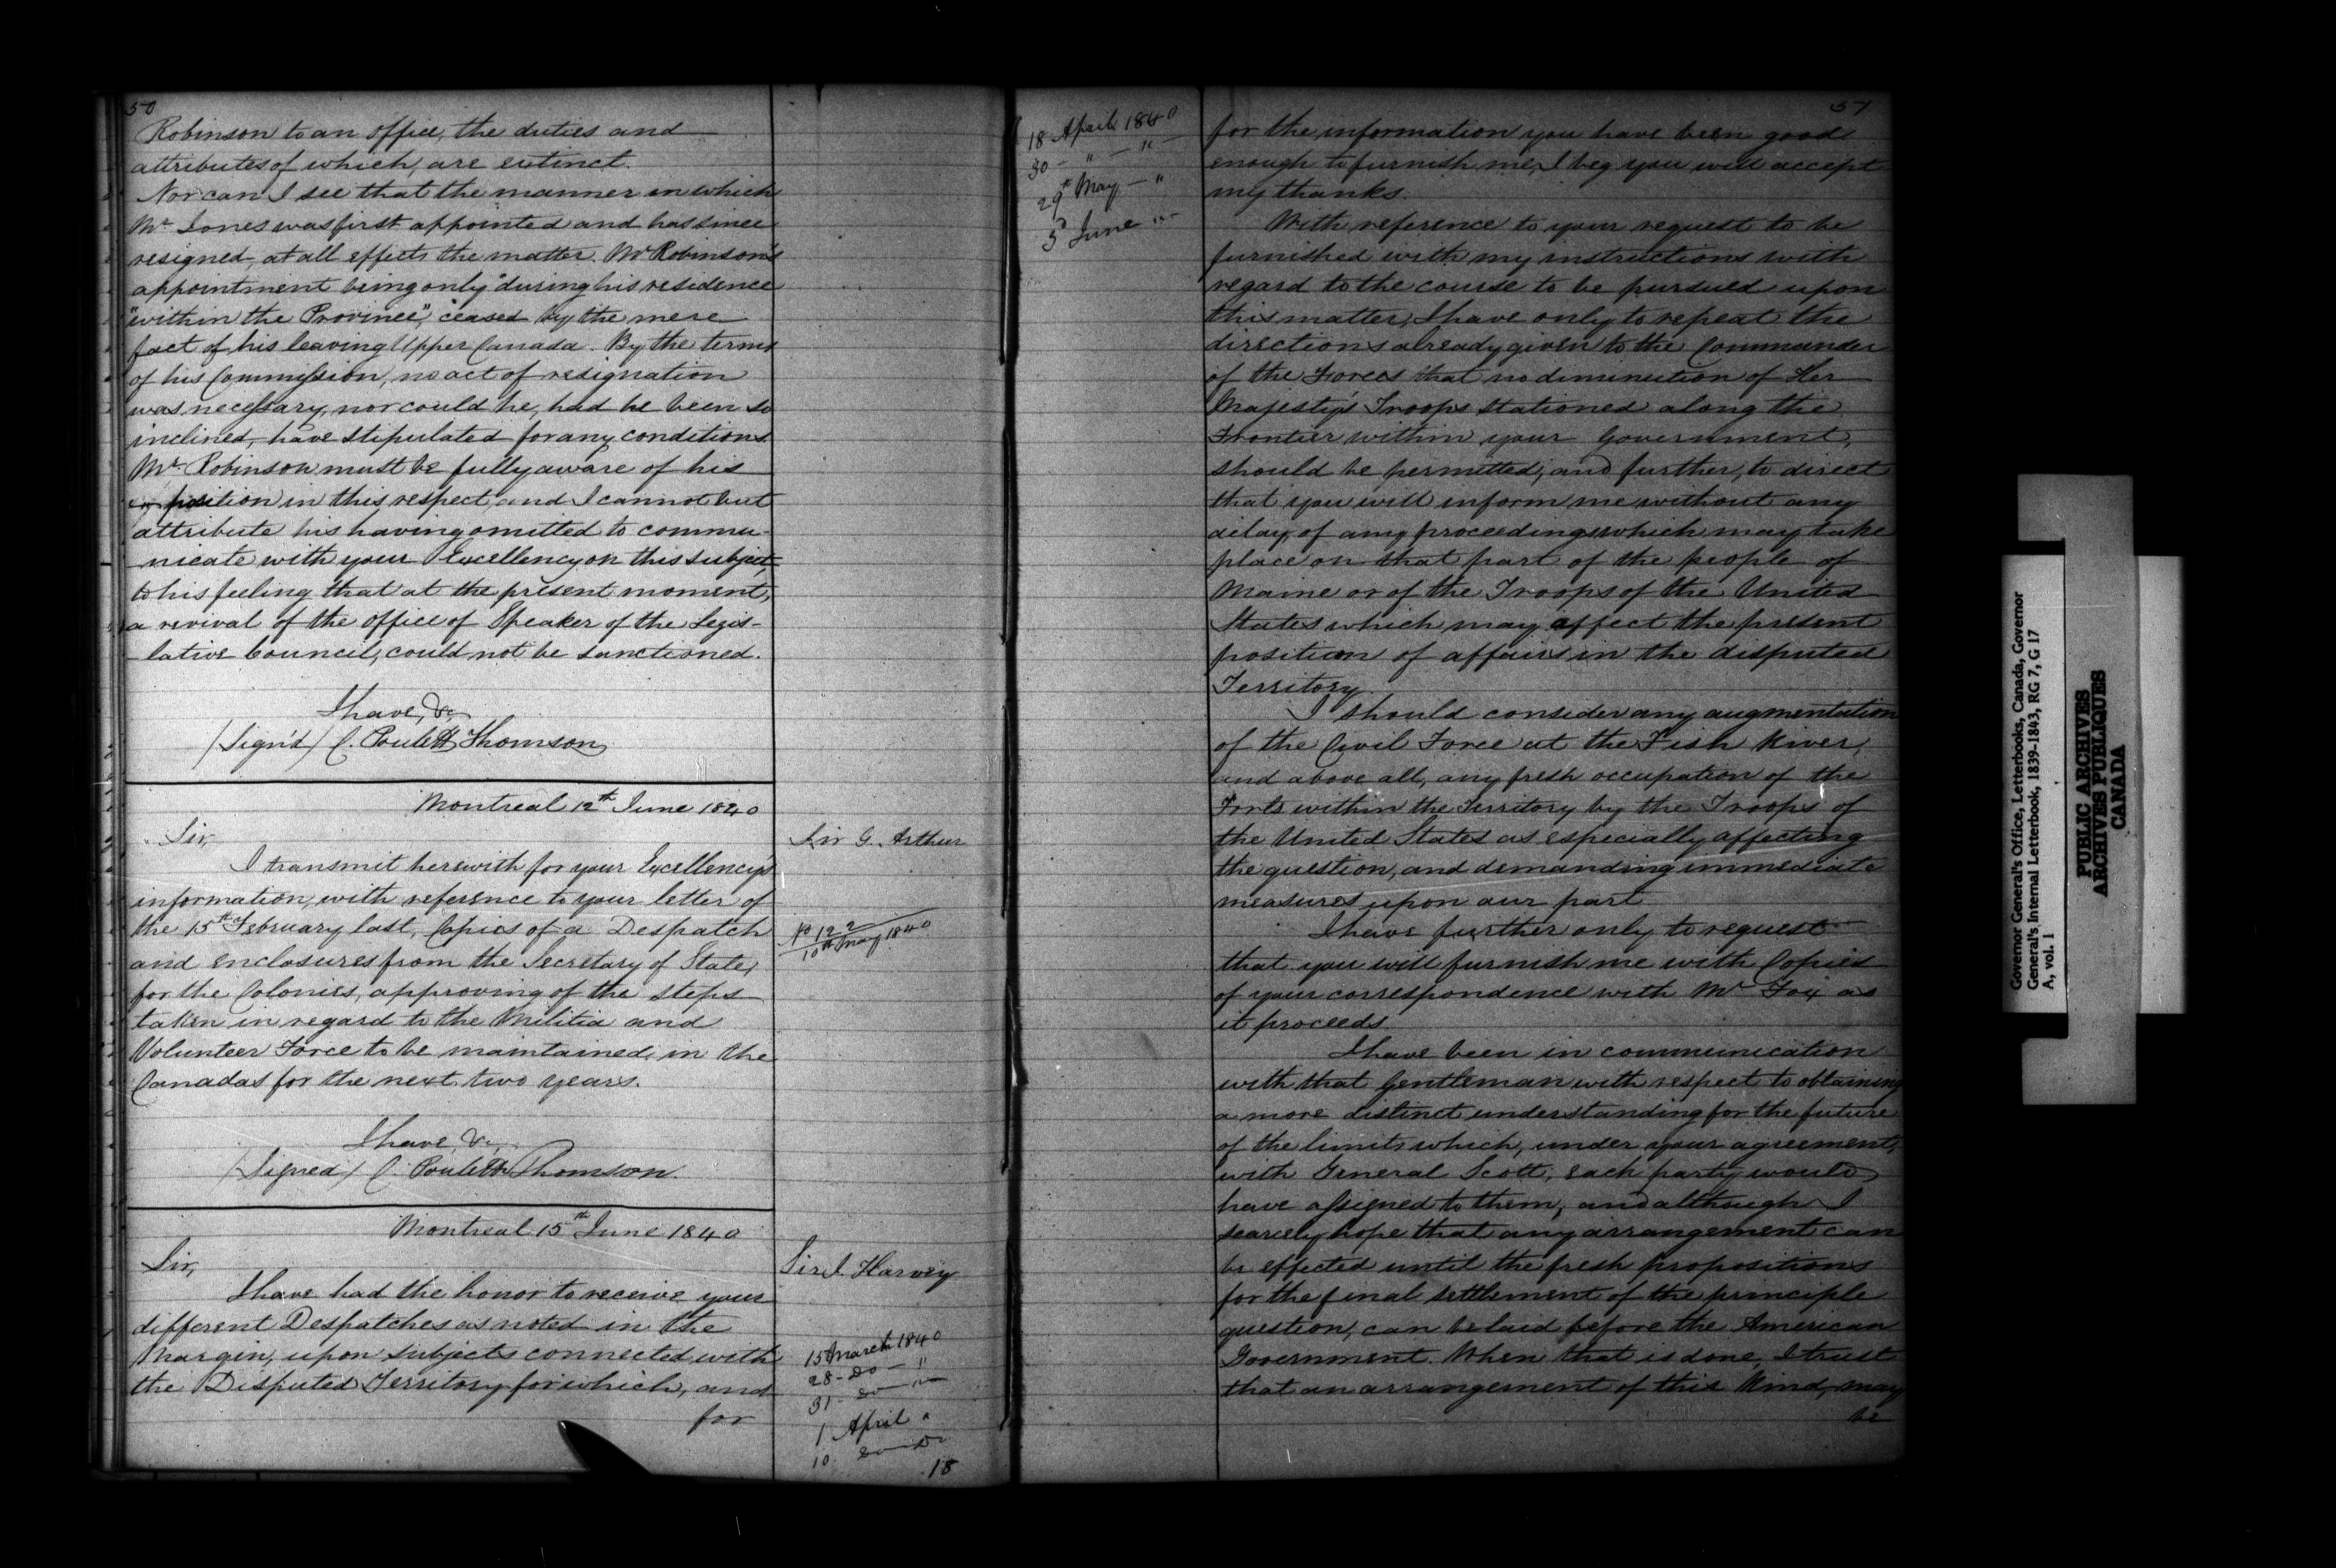 50
Robinson to an office, the duties and
attributes of which, are extinct.
Nor can I see that the manner in which
Mr Jones was first appointed and has since
resigned, at all effects the matter. Mr Robinson's
appointment being only "during his residence
"within the Province", ceased by the mere
fact of his leaving Upper Canada. By the terms
of his Commission, no act of resignation
was necessary, nor could he, had he been so
inclined, have stipulated for any conditions.
Mr Robinson must be fully aware of his
position in this respect, and I cannot but
attribute his having omitted to commu-
nicate with your Excellency on this subject,
to his feeling that at the present moment,
a revival of the office of Speaker of the Legis-
lative Council, could not be sanctioned.
I have, &c,
/Sign'd/ C. Poulett Thomson
Montreal 12th June 1840
Sir,
Sir G. Arthur
I transmit herewith for your Excellency's
information, with reference to your letter of
the 15th February last, Copies of a Despatch
No 122
10th May 1840
and enclosures from the Secretary of State,
for the Colonies, approving of the steps
taken in regard to the Militia and
Volunteer Force to be maintained, in the
Canadas for the next two years.
I have, &c,
/Signed/ C. Poulett Thomson.
Montreal 15th June 1840
Sir,
Sir J. Harvey
I have had the honor to receive your
different Despatches as noted in the
Margin, upon subjects connected with
the Disputed Territory for which, and
for
15 March 1840
28 - do - "
31 - do - "
1 April "
10 do do
18
51
18 April 1840
30 - " - "
29th May - "
3d June "
for the information you have been good
enough to furnish me, I beg you will accept
my thanks.
With reference to your request to be
furnished with my instructions with
regard to the course to be pursued upon
this matter, I have only to repeat the
directions already given to the Commander
of the Forces that no diminution of Her
Majesty's Troops stationed along the
Frontier within your Government,
should be permitted; and further, to direct
that you will inform me without any
delay, of any proceedings which may take
place on that part of the people of
Maine or of the Troops of the United
States which may affect the present
position of affairs in the disputed
Territory.
I should consider any augmentation
of the Civil Force at the Fish River,
and above all, any fresh occupation of the
Forts within the Territory by the Troops of
the United States as especially affecting
the question, and demanding immediate
measures upon our part
I have further only to request
that you will furnish me with Copies
of your correspondence with Mr Fox as
it proceeds.
I have been in communication
with that Gentleman with respect to obtaining
a more distinct understanding for the future
of the limits which, under your agreement,
with General Scott, each party would
have assigned to them, and although I
scarcely hope that any arrangement can
be effected until the fresh propositions
for the final settlement of the principle
question, can be laid before the American
Government. When that is done, I trust
that an arrangement of this kind, may
be
Governor General's Office, Letterbooks, Canada, Governor
General's Internal Letterbook, 1839-1843, RG 7, G 17
A, vol. 1
PUBLIC ARCHIVES
ARCHIVES PUBLIQUES
CANADA